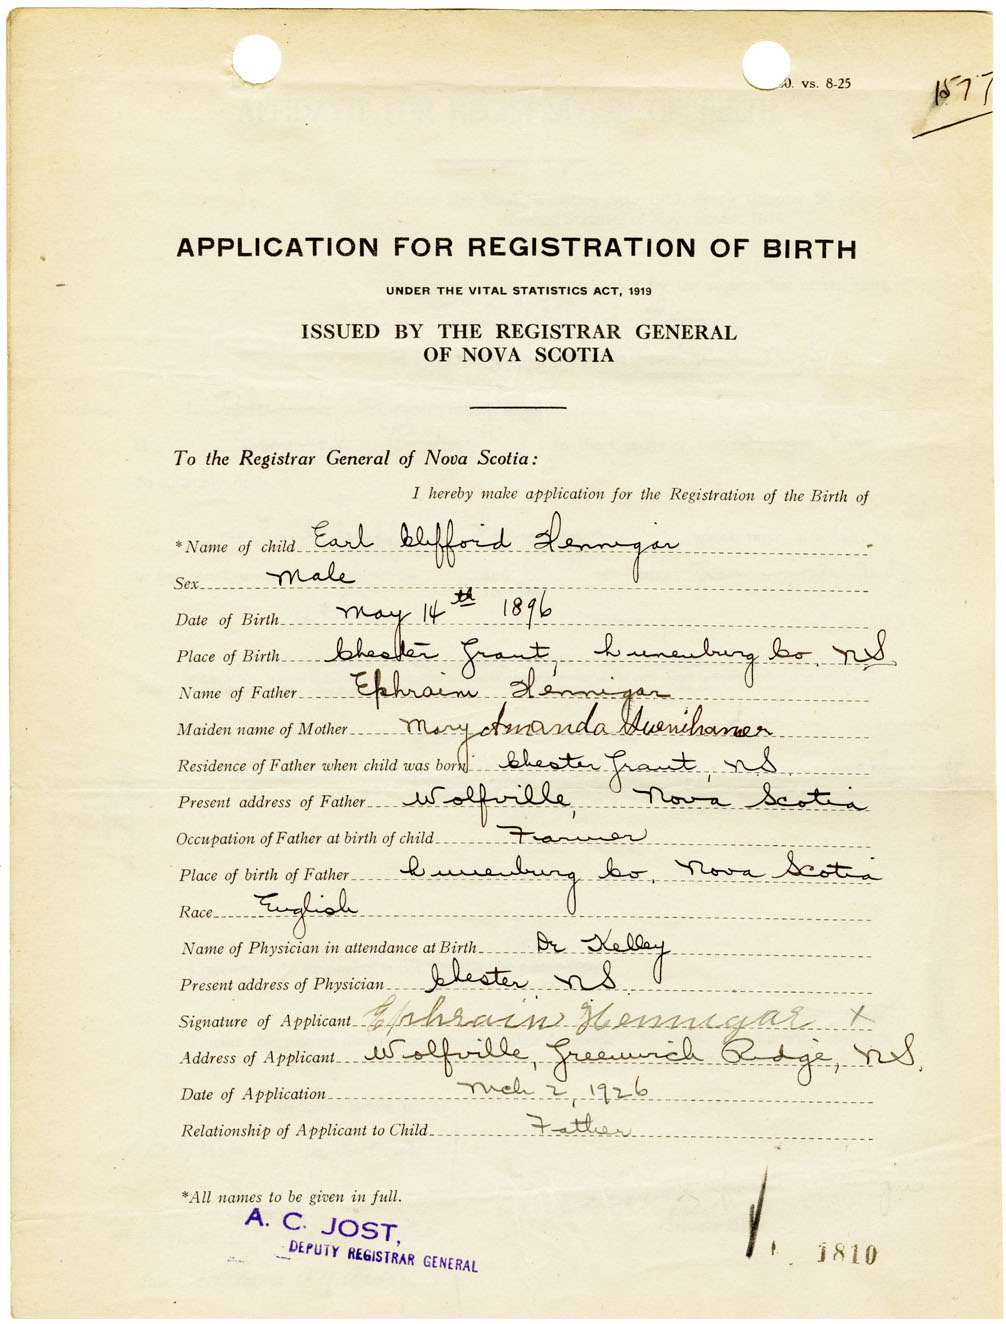 0. vs. 8-25
1577
APPLICATION FOR REGISTRATION OF BIRTH
UNDER THE VITAL STATISTICS ACT, 1919
ISSUED BY THE REGISTRAR GENERAL
OF NOVA SCOTIA
To the Registrar General of Nova Scotia:
I hereby make application for the Registration of the Birth of
*Name of child Earl Clifford Hennigar
Sex Male
Date of Birth May 14th 1896
Place of Birth Chester Grant, Lunenburg Co. NS.
Name of Father Ephraim Hennigar
Maiden name of Mother Mary Amanda
Residence of Father when child was born Chester Grant, NS.
Present address of Father Wolfville, Nova Scotia
Occupation of Father at birth of child Farmer
Place of birth of Father Lunenburg Co. Nova Scotia
Race English
Name of Physician in attendance at Birth Dr Kelley
Present address of Physician Chester NS.
Signature of Applicant Ephraim Hennigar X
Address of Applicant Wolfville, Greenwich Ridge, NS.
Date of Application Mch 2, 1926
Relationship of Applicant to Child Father
*All names to be given in full.
A. C. JOST,
DEPUTY REGISTRAR GENERAL
1810